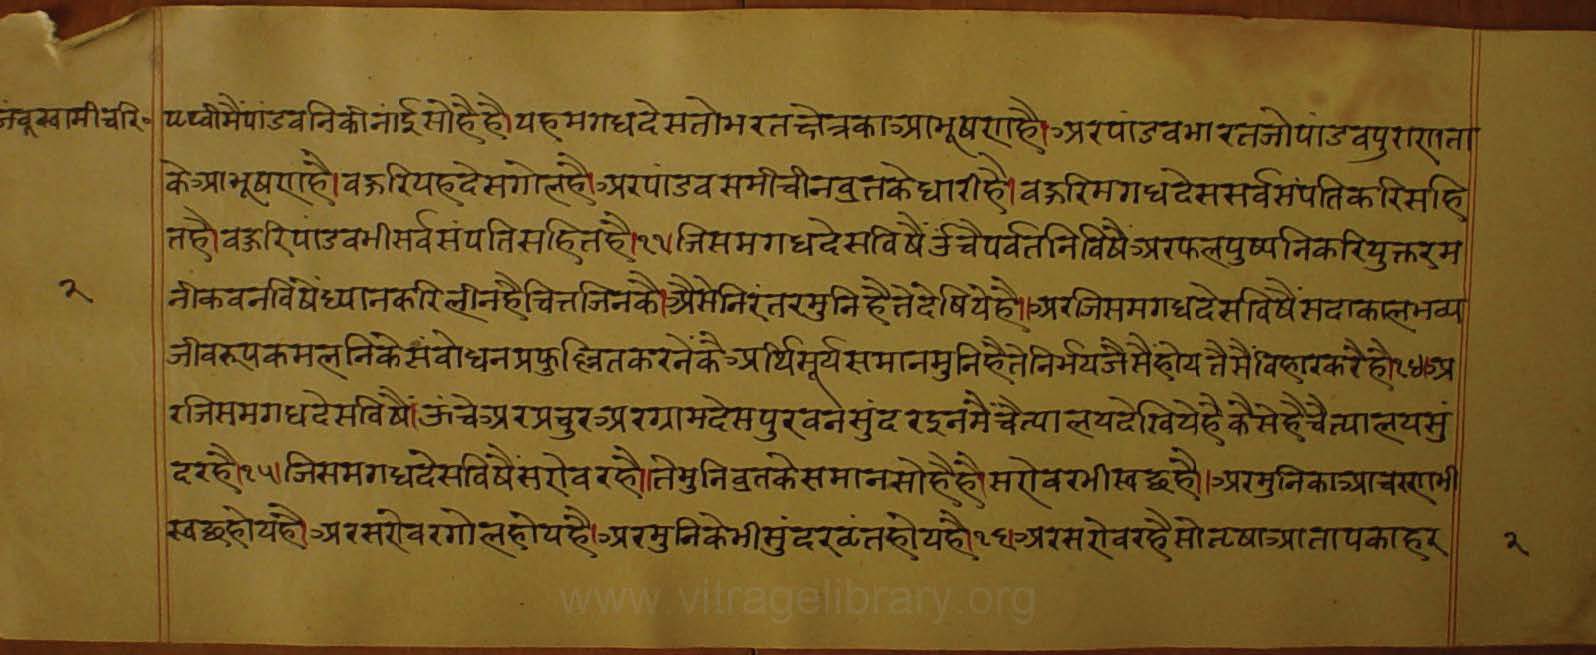 जंबूस्वामीचरि॰
पृथ्वीमैंपांडवनिकीनांईसोहैहै।यहमगधदेसतोभरतक्षेत्रकाआभूषणहै।अरपांडवभारतजोपांडवपुराणता
केआभूषणहै।वऊरियहदेसगोलहै।अरपांडवसमीचीनवृतकेधारीहै।वऊरिमगधदेससर्वसंपतिकरिसहि
तहै।वऊरिपांडवभीसर्वसंपतिसहितहै।१३।जिसमगधदेसविषैंऊंचैपर्वतनिविषैंअरफलपुष्पनिकरियुक्तरम
नींकवनविषैंध्यानकरिलीनहैचित्तजिनकौ।अैसेनिरंतरमुनिहैतेदेषियेहै।।अरजिसमगधदेसविषैंसदाकालभव्य
जीवरूपकमलनिकेसंवोधनप्रफुल्लितकरनेंकैअर्थिसूर्यसमानमुनिहैतेनिर्भयजैसैंहोयतैसैंविहारकरैहै।१४।अ
रजिसमगधदेसविषैं।ऊंचेअरप्रचुरअरग्रामदेसपुरवनसुंदरइनमैंचैत्यालयदेखियेहैकैसेहैचैत्यालयसुं
दरहै।१५।जिसमगधदेसविषैंसरोवरहै।तेमुनिवृतकेसमानसोहैहै।सरोवरभीस्वछहै।।अरमुनिकाआचरणभी
स्वछहोयहै।अरसरोवरगोलहोयहै।अरमुनिकेभीसुंदरवृंतहोयहै।१६।अरसरोवरहैसोतृषाआतापकाहर
२
२
www.vitragelibrary.org